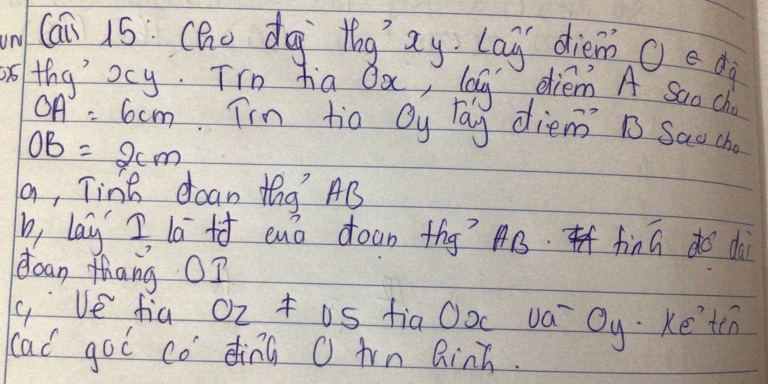 Câu 15: Cho đg thg' xy. Lấy điểm O ∈ đg
thg' xy. Trn tia Ox, lấy điểm A sao cho
OA = 6cm. Trn tia Oy lấy điểm B sao cho
OB = 2cm
a, Tính đoạn thg' AB
b, Lấy I là tđ của đoạn thg' AB. tính độ dài
đoạn thẳng OI
c, Vẽ tia Oz ≠ vs tia Ox và Oy. Kể tên
các góc có đỉnh O trn hình.